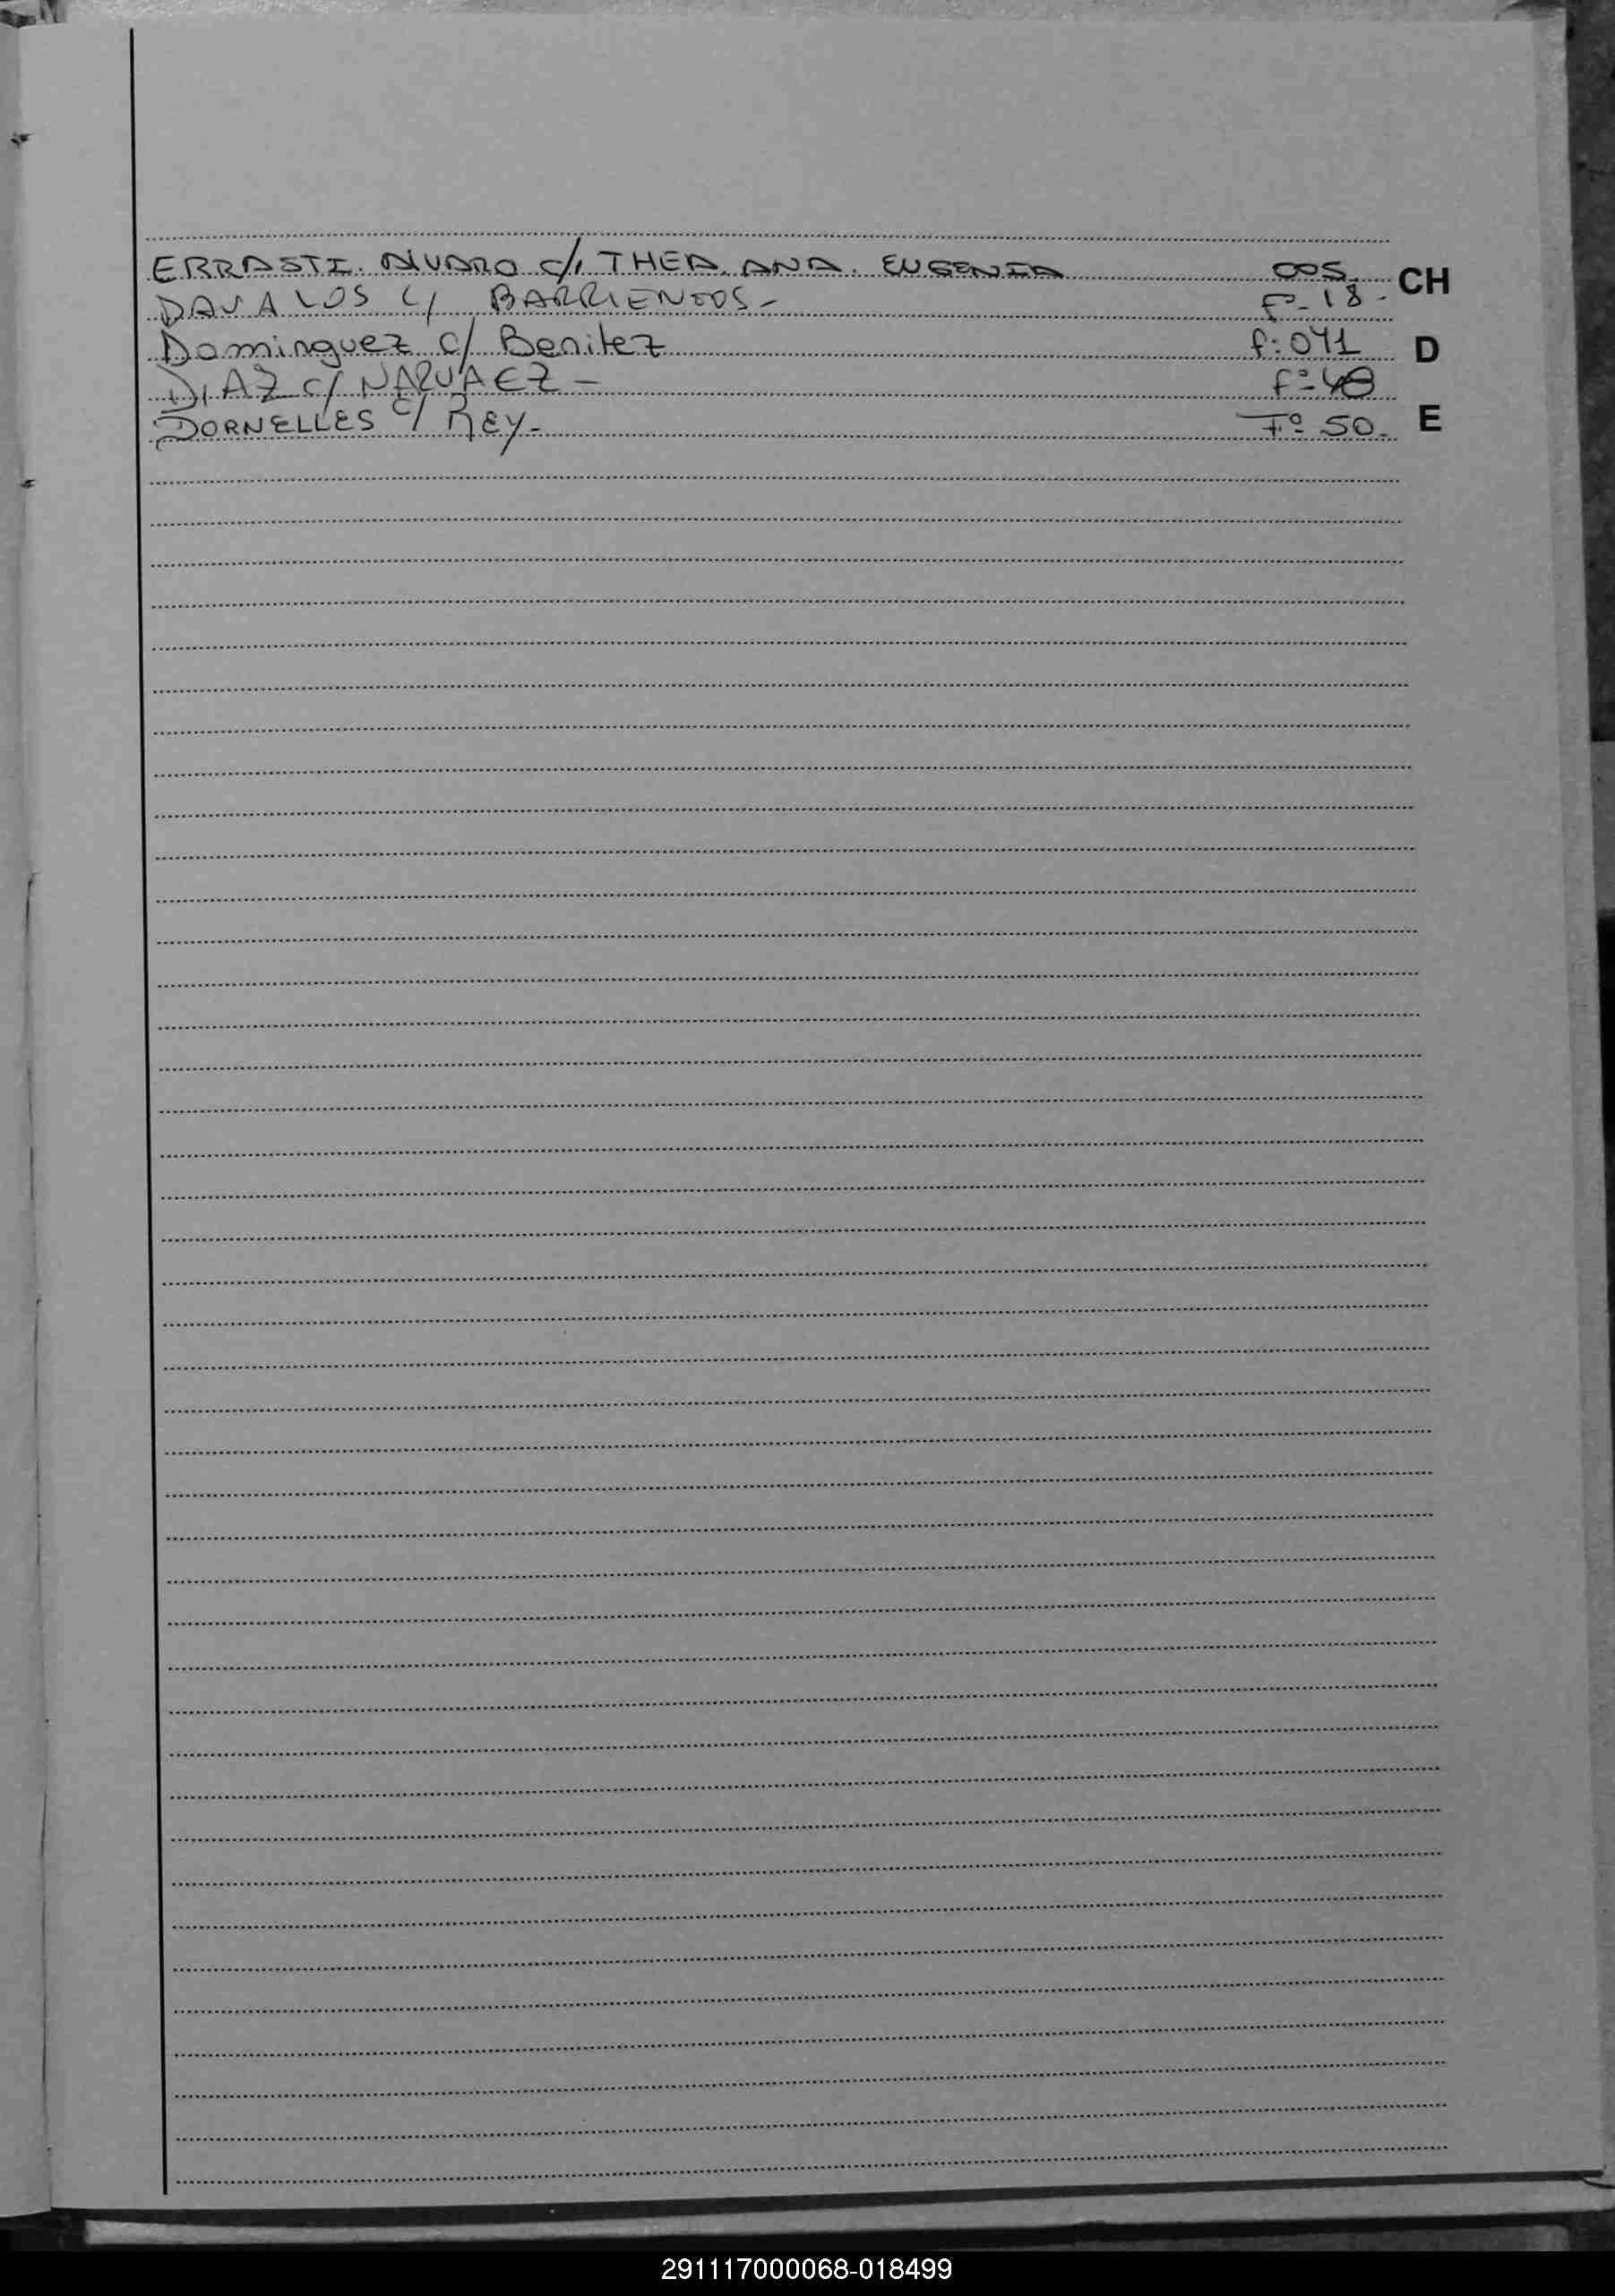 ERRASTI. ALVARO C/. THEA. ANA. EUGENIA 005. CH
DAVALOS C/ BARRIENTOS- Fº-18-
Dominguez c/ Benitez f:041 D
DIAZ C/ NARVAEZ- fº-48
DORNELLES C/ REY- Fº 50- E
291117000068-018499